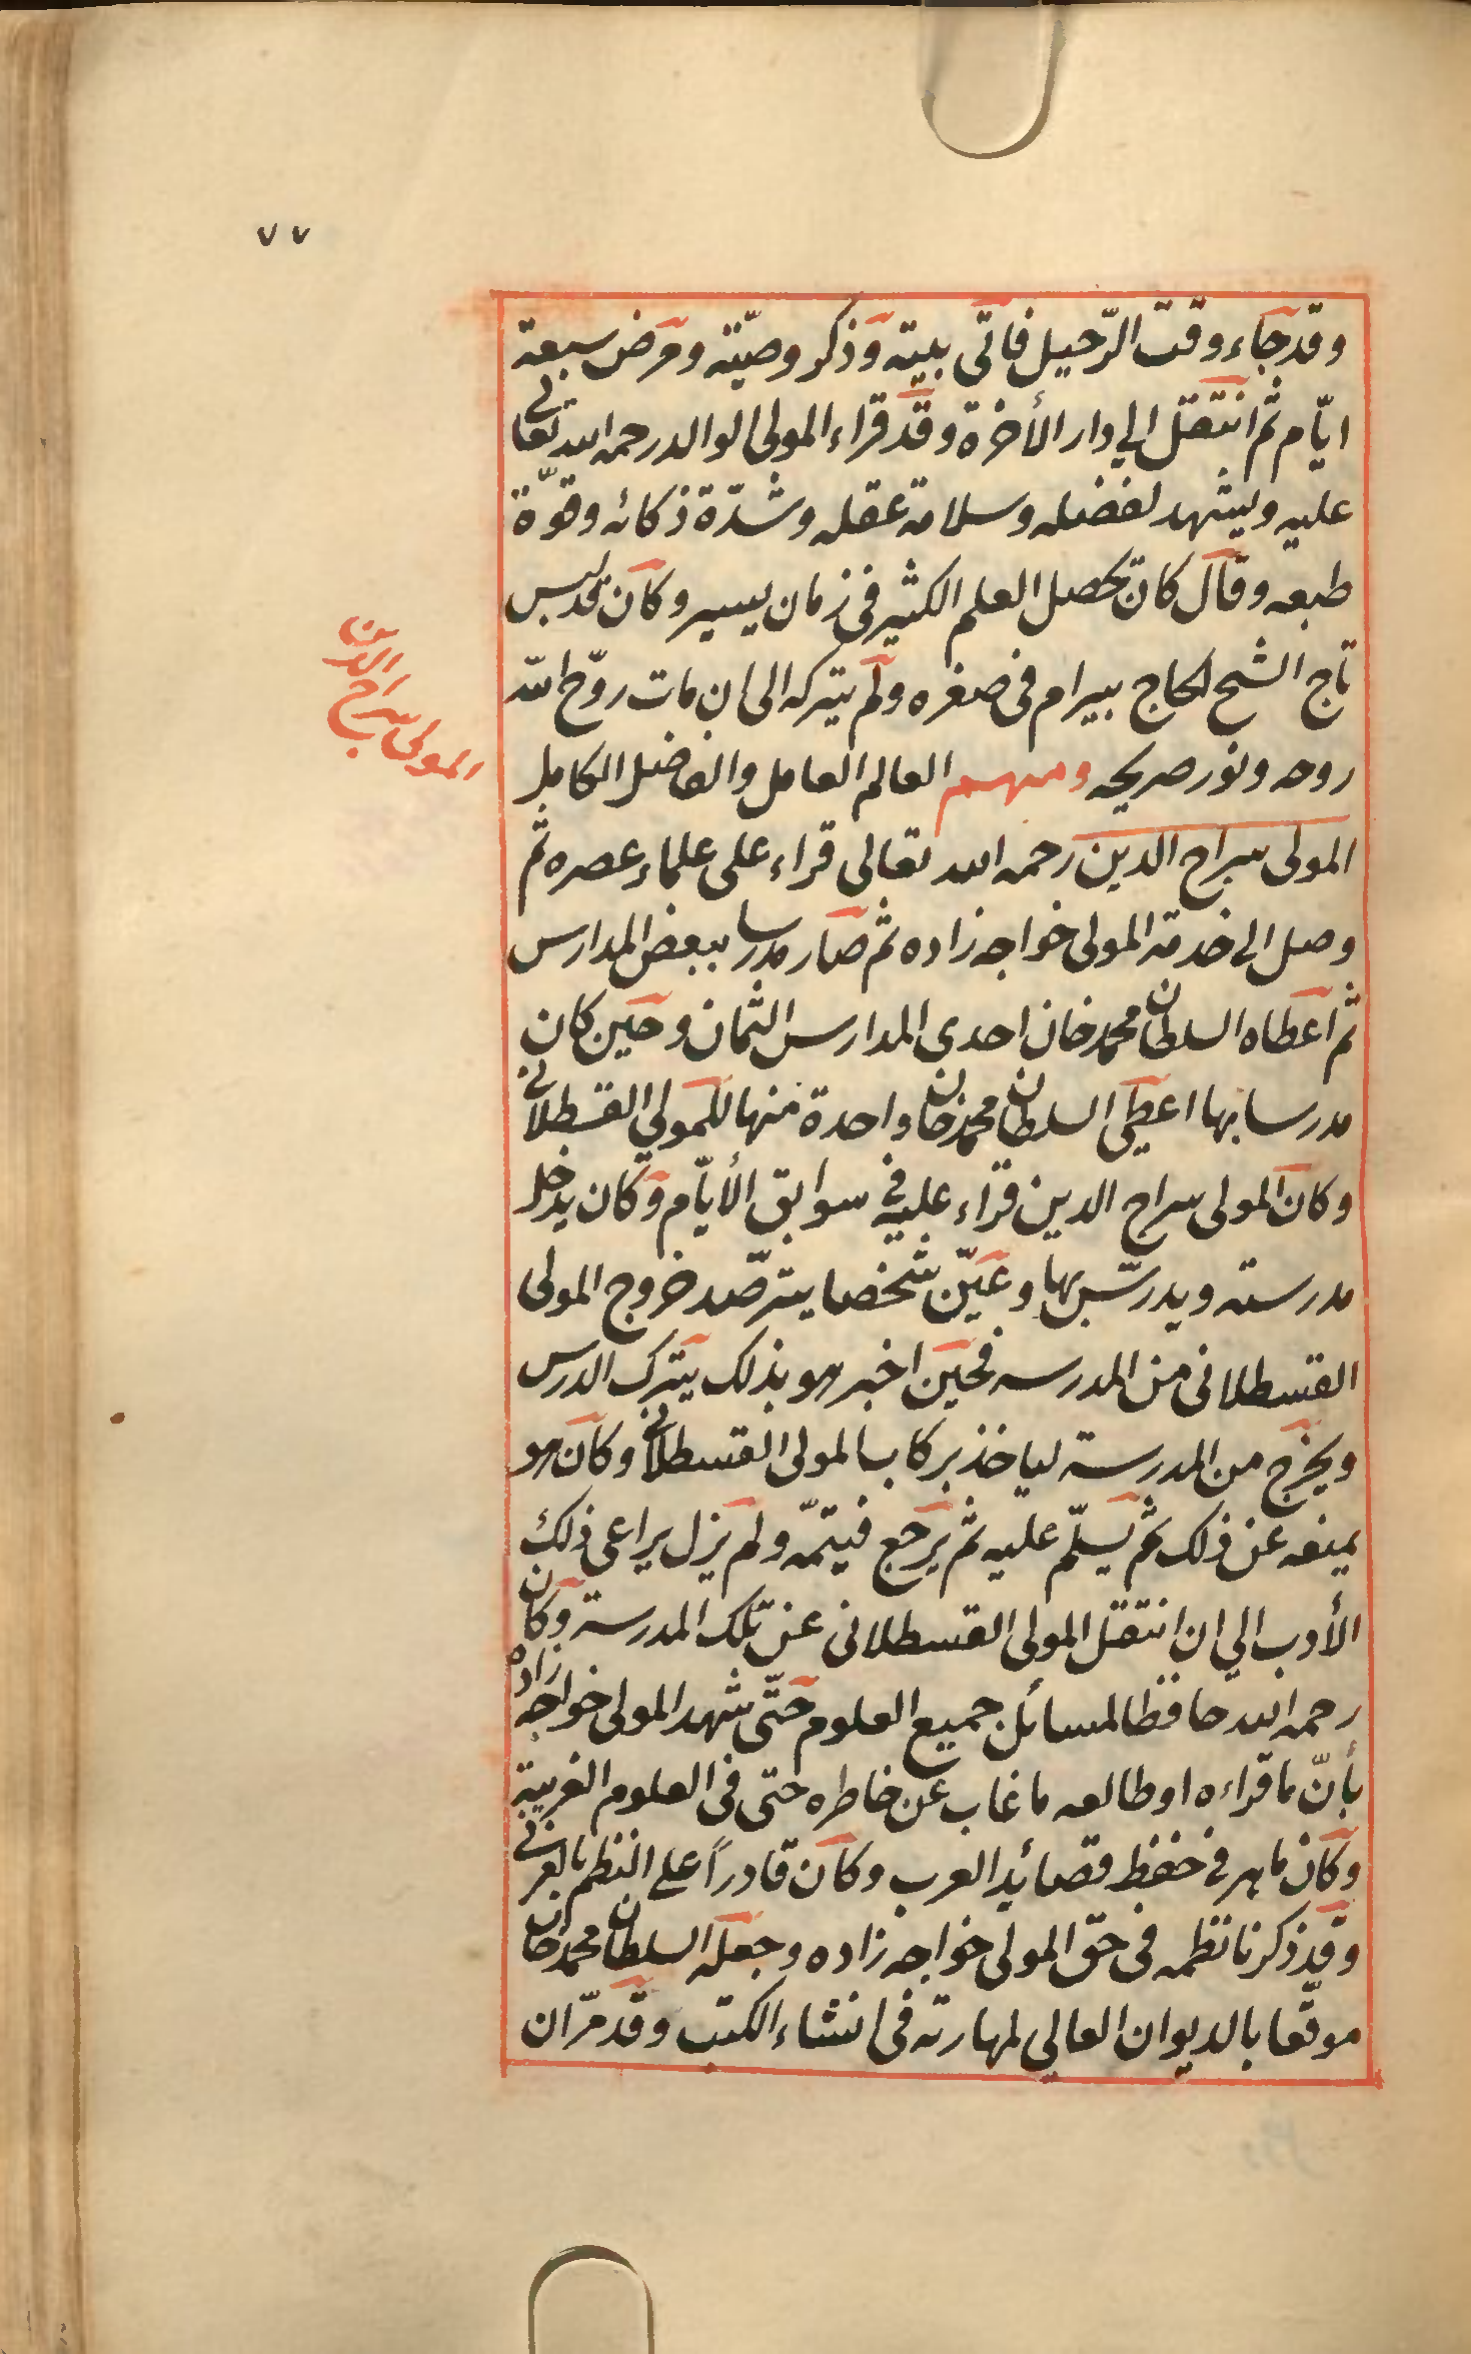 ٧٧
وقد جاء وقت الرّحيل فاتى بيته وذكر وصيّته ومرض سبعة
ايّام ثم انتقل الى دار الأخرة وقد قراء المولى الوالد رحمه الله تعالى
عليه ويشهد لفضله وسلامة عقله وشدّة ذكائه وقوّة
طبعه وقال كان تحصل العلم الكثير فى زمان يسير وكان قد لبس
تاج الشيخ الحاج بيرام فى صغره ولم يتركه الى ان مات روّح الله
روحه ونور ضريحه ومنهم العالم العامل والفاضل الكامل
المولى سراج الدين
المولى سراج الدين رحمه الله تعالى قراء على علماء عصره ثم
وصل الى خدمة المولى خواجه زاده ثم صار مدرسا ببعض المدارس
ثم اعطاه السلطان محمد خان احدى المدارس الثمان وحين كان
مدرسا بها اعطى السلطان محمد خان واحدة منها للمولى القسطلانى
وكان المولى سراج الدين قراء عليه فى سوابق الأيّام وكان يدخل
مدرسته ويدرّس بها وعيّن شخصا يترصّد خروج المولى
القسطلانى من المدرسه فحين اخبر هو بذلك يترك الدرس
ويخرج من المدرسة لياخذ بركاب المولى القسطلانى وكان هو
يمنعه عن ذلك ثم يسلّم عليه ثم يرجع فيتمّه ولم يزل يراعى ذلك
الأدب الى ان انتقل المولى القسطلانى عن تلك المدرسة وكان
رحمه الله حافظا لمسائل جميع العلوم حتّى شهد المولى خواجه زاده
بأنّ ما قراءه او طالعه ما غاب عن خاطره حتى فى العلوم الغريبة
وكان ماهر فى حفظ قصائد العرب وكان قادراً على النظم بالعربى
وقد ذكرنا نظمه فى حق المولى خواجه زاده وجعله السلطان محمد خان
موقّعا بالديوان العالى لمهارته فى انشاء الكتب وقد مرّ ان